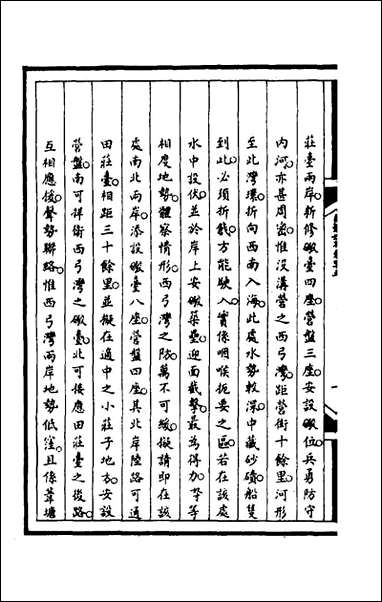 莊臺兩岸新修礮臺四座營盤三座安設礮位兵勇防守
内河亦甚周密惟沒溝營之西弓灣距營街十餘里河形
至北灣環折向西南入海此處水勢較深中藏砂磧船隻
到此必須折戧方能駛入實係咽喉扼要之區若在該處
水中投伏並於岸上安礮築壘迎面截擊最為得力奴才等
相度地勢體察情形西弓灣之防萬不可緩擬請即在該
處南北兩岸添設礮臺八座營盤四座其北岸陸路可通
田莊臺相距三十餘里並擬在適中之小莊子地方安設
營盤南可捍衛西弓灣之礮臺北可接應田莊臺之後路
互相應援聲勢聯絡惟西弓灣兩岸地勢低窪且係葦塘